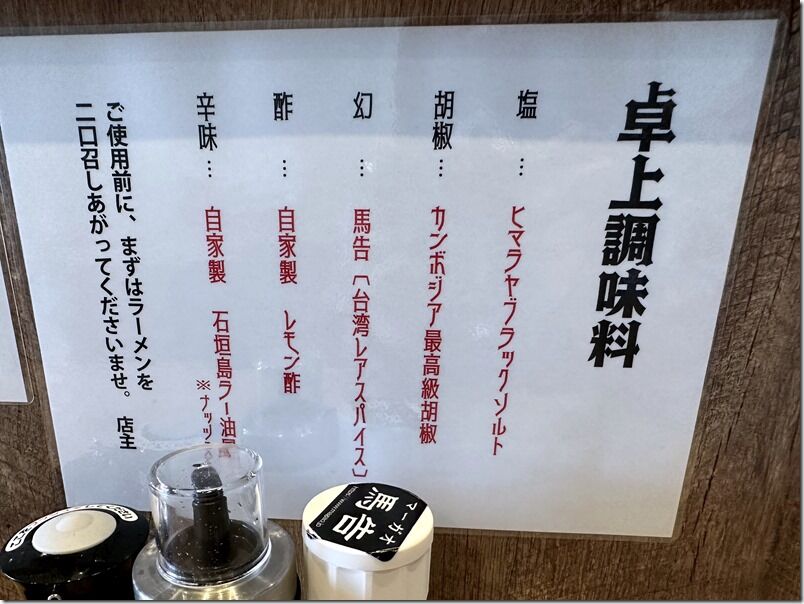 卓上調味料
塩 … ヒマラヤブラックソルト
胡椒… カンボジア最高級胡椒
幻 … 馬告〔台湾レアスパイス〕
酢 … 自家製 レモン酢
辛味… 自家製 石垣島ラー油風
※ナッツ
ご使用前に、まずはラーメンを
二口召しあがってくださいませ。 店主
馬告
マーガオ